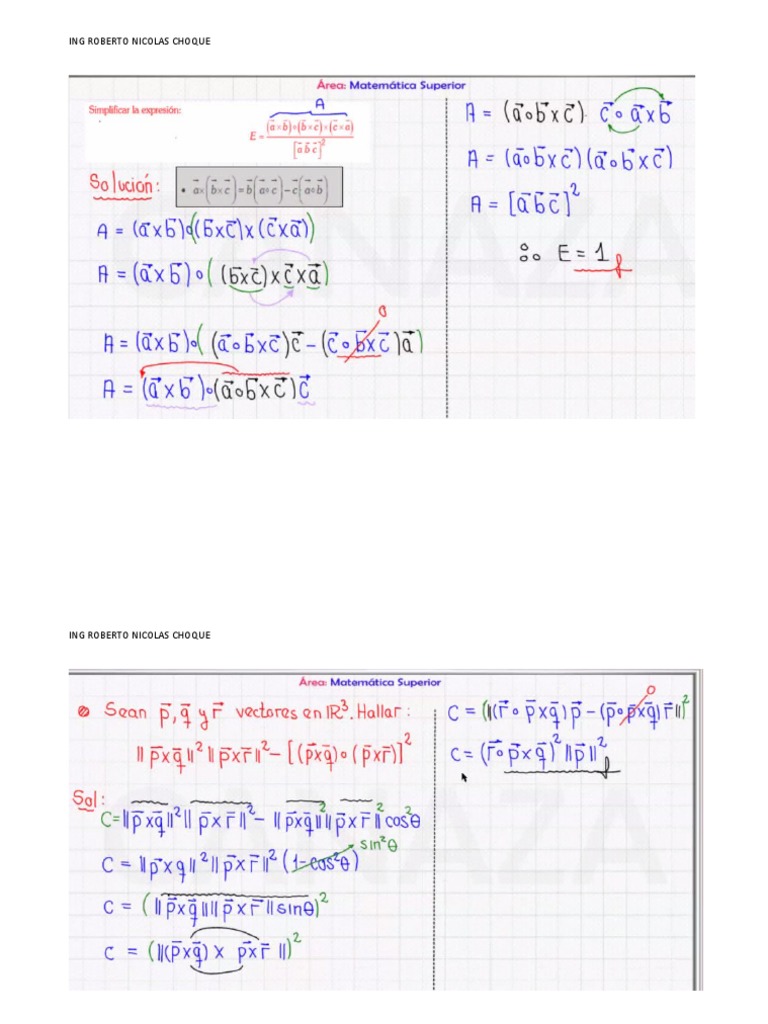 ING ROBERTO NICOLAS CHOQUE
Área: Matemática Superior
Simplificar la expresión:
A
E = (a⃗×b⃗)∘(b⃗×c⃗)×(c⃗×a⃗) / [a⃗ b⃗ c⃗]²
Solución:
• a⃗×(b⃗×c⃗)=b⃗(a⃗∘c⃗)−c⃗(a⃗∘b⃗)
A = (a⃗×b⃗)∘((b⃗×c⃗)×(c⃗×a⃗))
A = (a⃗×b⃗)∘((b⃗×c⃗)×c⃗×a⃗)
0
A = (a⃗×b⃗)∘((a⃗∘b⃗×c⃗)c⃗ − (c⃗∘b⃗×c⃗)a⃗)
A = (a⃗×b⃗)∘(a⃗∘b⃗×c⃗)c⃗
A = (a⃗∘b⃗×c⃗) c⃗∘a⃗×b⃗
A = (a⃗∘b⃗×c⃗)(a⃗∘b⃗×c⃗)
A = [a⃗b⃗c⃗]²
∴ E = 1
ING ROBERTO NICOLAS CHOQUE
Área: Matemática Superior
Sean p⃗, q⃗ y r⃗ vectores en IR³. Hallar:
||p⃗×q⃗||²||p⃗×r⃗||² − [(p⃗×q⃗)∘(p⃗×r⃗)]²
Sol:
C=||p⃗×q⃗||²||p⃗×r⃗||² − ||p⃗×q⃗||²||p⃗×r⃗||²cos²θ
sin²θ
C = ||p⃗×q||²||p⃗×r⃗||²(1−cos²θ)
C = (||p⃗×q⃗||||p⃗×r⃗||sinθ)²
C = (||(p⃗×q⃗)× p⃗×r⃗||)²
0
C = (||(r⃗∘p⃗×q⃗)p⃗ − (p⃗∘p⃗×q⃗)r⃗||)²
C = (r⃗∘p⃗×q⃗)²||p⃗||²